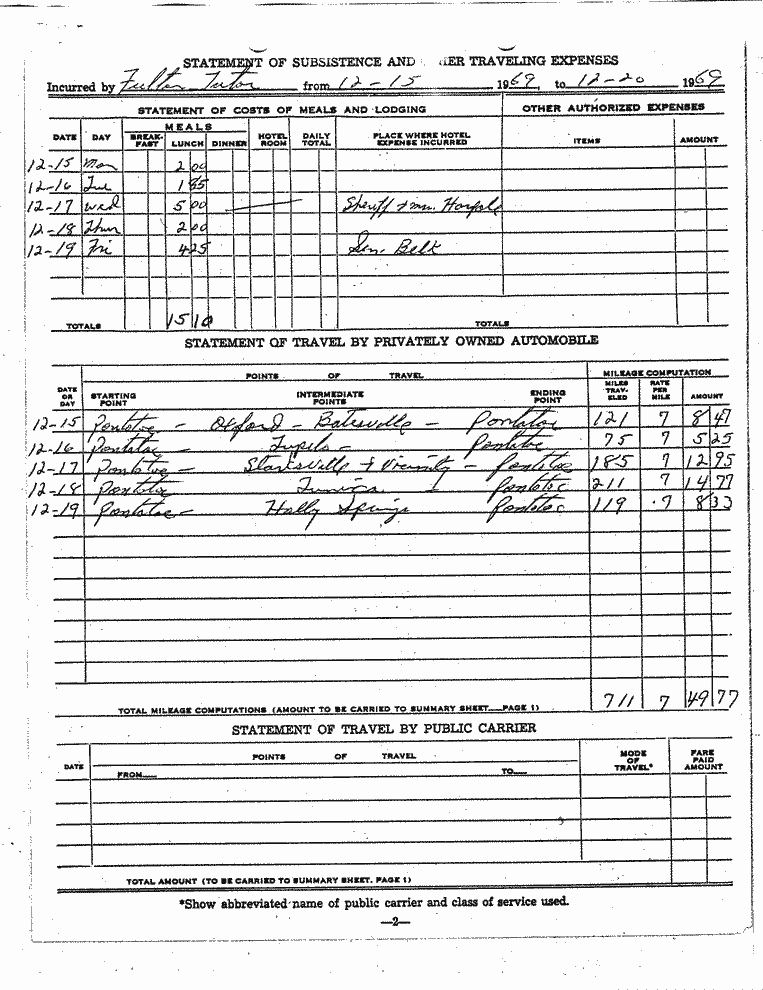 STATEMENT OF SUBSISTENCE AND HER TRAVELING EXPENSES
Incurred by Fulton Tutor from 12-15 1969 to 12-20 1969
STATEMENT OF COSTS OF MEALS AND LODGING OTHER AUTHORIZED EXPENSES
DATE DAY MEALS BREAK-FAST LUNCH DINNER HOTEL ROOM DAILY TOTAL PLACE WHERE HOTEL EXPENSE INCURRED ITEMS AMOUNT
12-15 Mon 2 00
12-16 Tue 1 85
12-17 Wed 5 00 Sheriff & mrs.
12-18 Thur 2 00
12-19 Fri 4 25 Sen. Belk
TOTALS 15 10 TOTALS
STATEMENT OF TRAVEL BY PRIVATELY OWNED AUTOMOBILE
POINTS OF TRAVEL MILEAGE COMPUTATION
DATE OR DAY STARTING POINT INTERMEDIATE POINTS ENDING POINT MILES TRAV-ELED RATE PER MILE AMOUNT
12-15 Pontotoc - Oxford - Batesville - Pontotoc 121 7 8 47
12-16 Pontotoc - Tupelo - Pontotoc 75 7 5 25
12-17 Pontotoc - Starksville & Vicinity - Pontotoc 185 7 12 95
12-18 Pontotoc - Tunica - Pontotoc 211 7 14 77
12-19 Pontotoc - Holly Springs Pontotoc 119 .7 8 33
TOTAL MILEAGE COMPUTATIONS (AMOUNT TO BE CARRIED TO SUMMARY SHEET PAGE 1) 711 7 49 77
STATEMENT OF TRAVEL BY PUBLIC CARRIER
DATE POINTS OF TRAVEL MODE OF TRAVEL* FARE PAID AMOUNT
FROM TO
TOTAL AMOUNT (TO BE CARRIED TO SUMMARY SHEET, PAGE 1)
*Show abbreviated name of public carrier and class of service used.
—2—